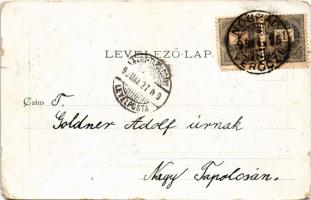 LEVELEZŐ-LAP.
LEVÉLPOSTA
Czim T.
Goldner Adolf úrnak
Nagy Tapolcsán.